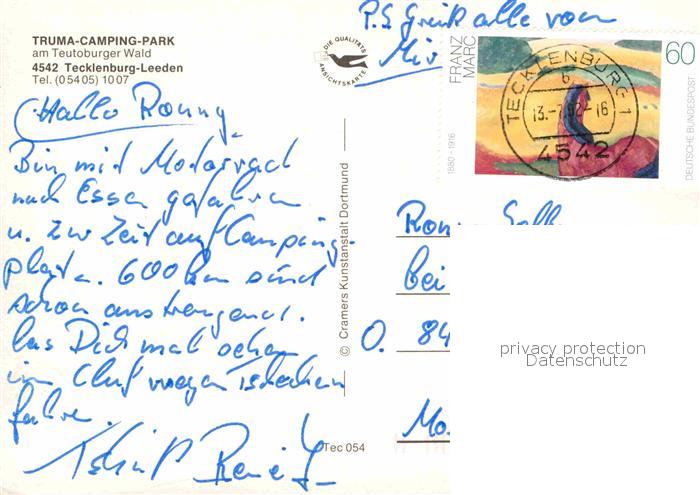 TRUMA-CAMPING-PARK
am Teutoburger Wald
4542 Tecklenburg-Leeden
Tel. (0 54 05) 10 07
DIE QUALITÄTS
ANSICHTSKARTE
P.S Grüß alle von
Mir
FRANZ
MARC
1880 - 1916
60
DEUTSCHE BUNDESPOST
TECKLENBURG 1
b
-16
4542
Hallo Ronny
Bin mit Motorrad
nach Essen gefahren
u. zur Zeit auf Camping-
platz. 600 km sind
schon anstrengend.
Las Dich mal sehen
im Club wegen
fahre.
© Cramers Kunstanstalt Dortmund
Tec 054
bei
O. 84
Mo.
privacy protection
Datenschutz